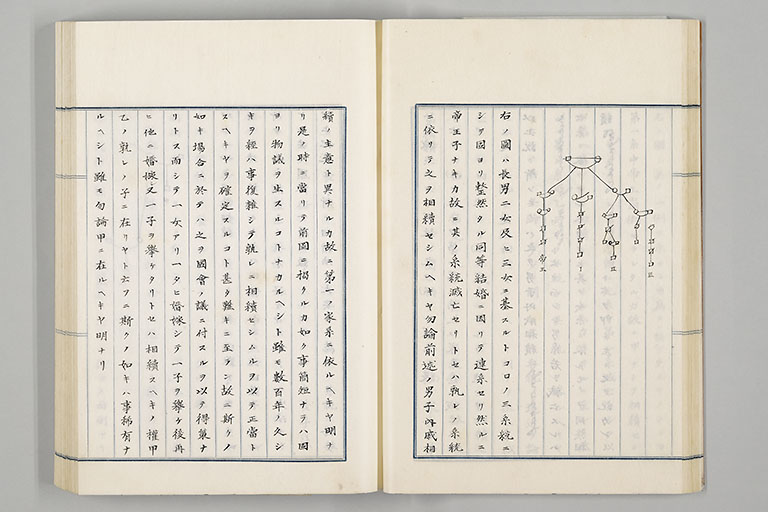 帝王
右ノ圖ハ長男二女及ヒ三女ニ基スルトコロノ三系統ニ
シテ固ヨリ整然タル同等結婚ニ因リテ連系セリ然ルニ
帝王子ナキカ故ニ其ノ系統滅亡セリトセハ孰レノ系統
ニ依リテ之ヲ相續セシムヘキヤ勿論前述ノ男子外戚相
續ノ主意ト異ナルカ故ニ第一ノ家系ニ依ルヘキヤ明ナ
リ是ノ時ニ當リテ前圖ニ掲クルカ如ク事簡短ナラハ固
ヨリ物議ヲ生スルコトナカルヘシト雖モ數百年ノ久シ
キヲ經ハ事復雜シテ孰レニ相續セシムルヲ以テ正當ト
スヘキヤヲ確定スルコト甚タ難キニ至ラン故ニ斯クノ
如キ場合ニ於テハ之ヲ國會ノ議ニ付スルヲ以テ得策ナ
リトス而シテ一女アリ一タヒ婚嫁シテ一子ヲ擧ケ後再
ヒ他ニ婚嫁又一子ヲ擧ケタリトセハ相續スヘキノ權甲
乙ノ孰レノ子ニ在リヤト云フニ斯クノ如キハ事稀有ナ
ルヘシト雖モ勿論甲ニ在ルヘキヤ明ナリ